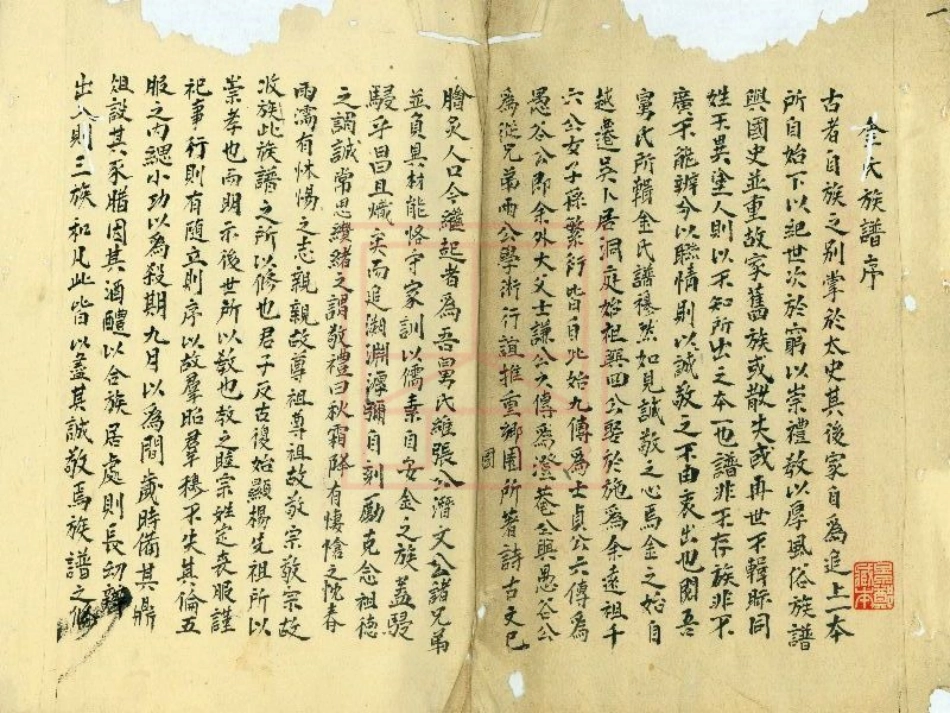 金氏族譜序
古者自族之别掌於太史其後家自為追上一本
所自始下以紀世次於窮以崇禮教以厚風俗族譜
興國史並重故家舊族或散失或再世不輯眎同
姓于異塗人則以不知所出之本一也譜非不存族非不
廣不能辨今以聮情則以誠敬之不由衷出也閱吾
舅氏所輯金氏譜穆然如見誠敬之心焉金之始自
越遷吳卜居洞庭始祖興四公娶於施為余遠祖千
六公女子孫繁衍皆自此始九傳為士貞公六傳為
愚谷公即余外大父士謙公六傳為澄菴公與愚谷公
為從兄弟兩公學術行誼推重鄉園所著詩古文已
圃
膾炙人口今繼起者為吾舅氏維張公濟文公諸兄弟
並負具材能恪守家訓以儒素自安金之族蓋駸
駸乎昌且熾矣而追溯淵源彌自刻勵克念祖德
之謂誠常思纘緒之謂敬禮曰秋霜降有悽愴之忱春
雨濡有怵惕之志親親故尊祖尊祖故敬宗敬宗故
收族此族譜之所以修也君子反古復始顯楊先祖所以
崇孝也而明示後世所以教也教之睦宗姓定喪服謹
祀事行則有随立則序以故羣昭羣穆不失其倫五
服之内緦小功以為殺期九月以為間歲時備其鼎
俎設其豕腊因其酒醴以合族居處則長幼辨
出入則三族和凡此皆以盡其誠敬焉族譜之修